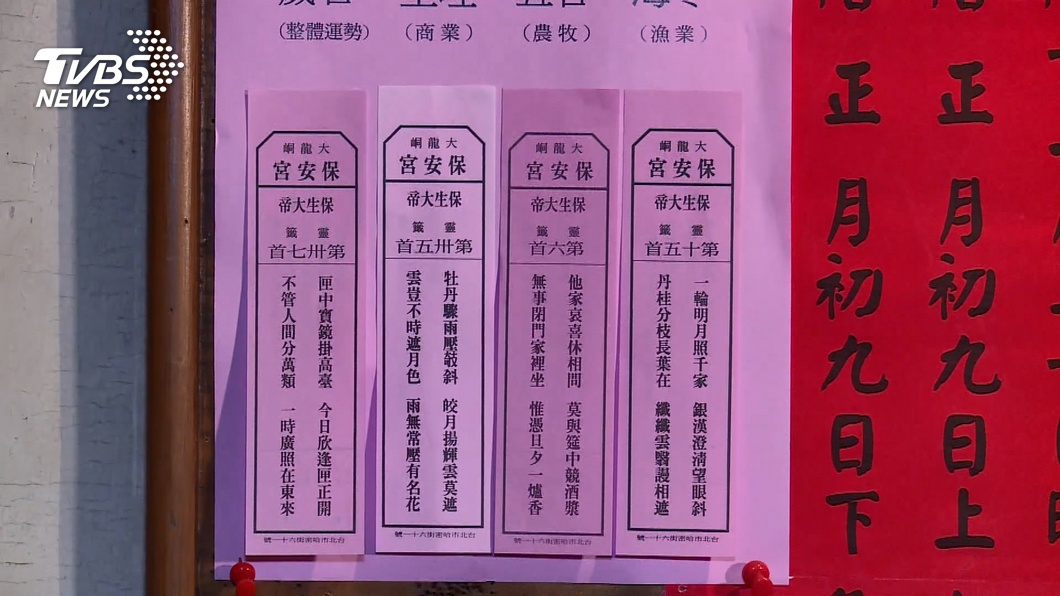 TVBS
NEWS
(整體運勢)
(商業)
(農牧)
(漁業)
大龍峒
保安宮
保生大帝
靈籤
第十五首
一輪明月照千家 銀漢澄清望眼斜
丹桂分枝長葉在 纖纖雲翳謾相遮
大龍峒
保安宮
保生大帝
靈籤
第六首
他家哀喜休相間 莫與筵中競酒漿
無事閉門家裡坐 惟憑旦夕一爐香
台北市哈密街六十一號
大龍峒
保安宮
保生大帝
靈籤
第卅五首
牡丹驟雨壓欹斜 皎月揚輝雲莫遮
雲豈不時遮月色 雨無常壓有名花
台北市哈密街六十一號
大龍峒
保安宮
保生大帝
靈籤
第卅七首
匣中寶鏡掛高臺 今日欣逢匣正開
不管人間分萬類 一時廣照在東來
台北市哈密街六十一號
台北市哈密街六十一號
正月初九日上
正月初九日下